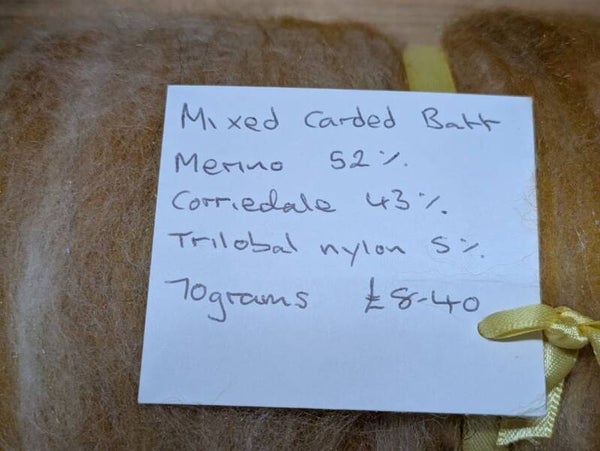 Mixed Carded Batt
Merino 52%.
Corriedale 43%.
Trilobal nylon 5%.
70grams £8-40